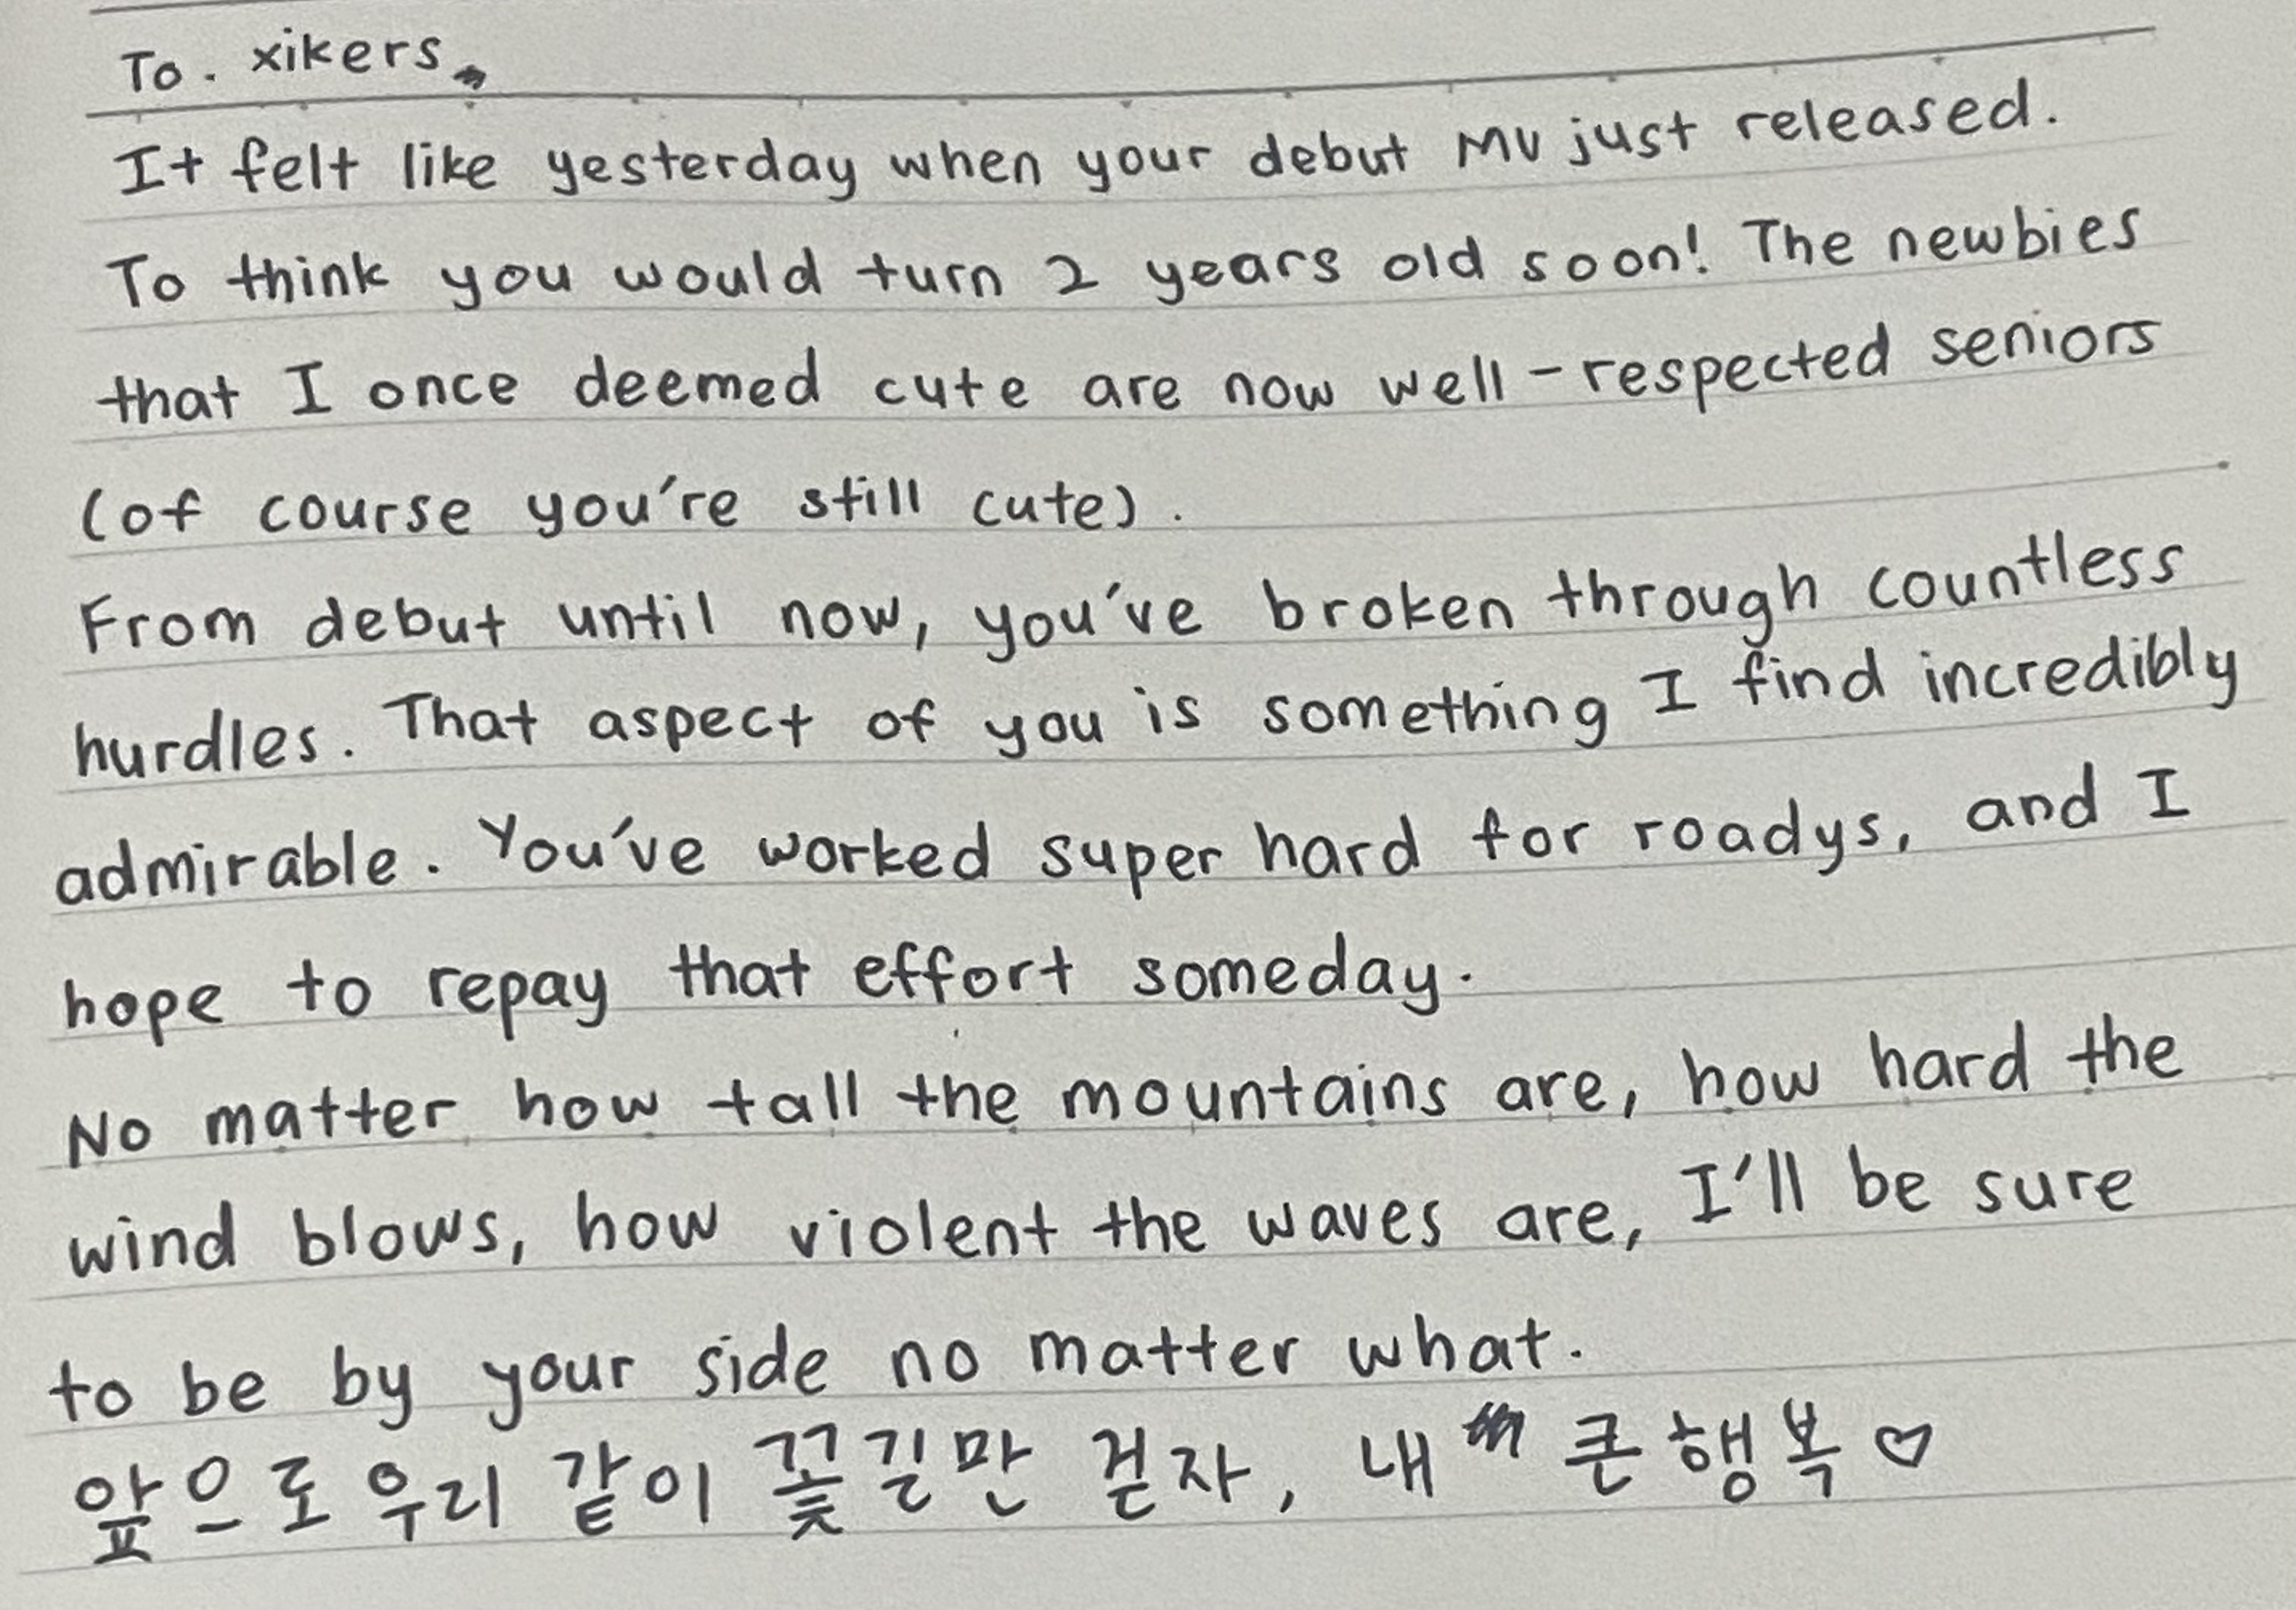 To. xikers
It felt like yesterday when your debut MV just released.
To think you would turn 2 years old soon! The newbies
that I once deemed cute are now well-respected seniors
(of course you're still cute).
From debut until now, you've broken through countless
hurdles. That aspect of you is something I find incredibly
admirable. You've worked super hard for roadys, and I
hope to repay that effort someday.
No matter how tall the mountains are, how hard the
wind blows, how violent the waves are, I'll be sure
to be by your side no matter what.
앞으로 우리 같이 꽃길만 걷자, 내 큰 행복♡